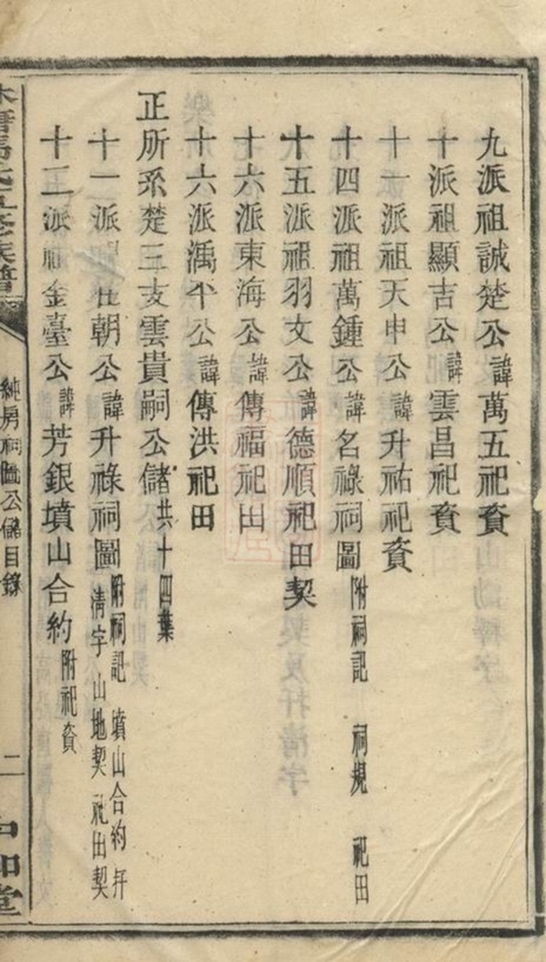 九派祖誠楚公諱萬五祀資
十派祖顯吉公諱雲昌祀資
十一派祖天申公諱升祐祀資
十四派祖萬鍾公諱名祿祠圖附祠記 祠規 祀田
十五派祖羽女公諱德順祀田契
十六派東海公諱傳福祀田
十六派漘平公諱傳洪祀田
正所系楚三支雲貴嗣公儲共十四葉
十一派祖在朝公諱升祿祠圖附祠記 墳山合約 幷清字山地契 祀田契
十三派祖金臺公諱芳銀墳山合約附祀資
氏五修族譜
純房祠圖公儲目錄
二
和堂